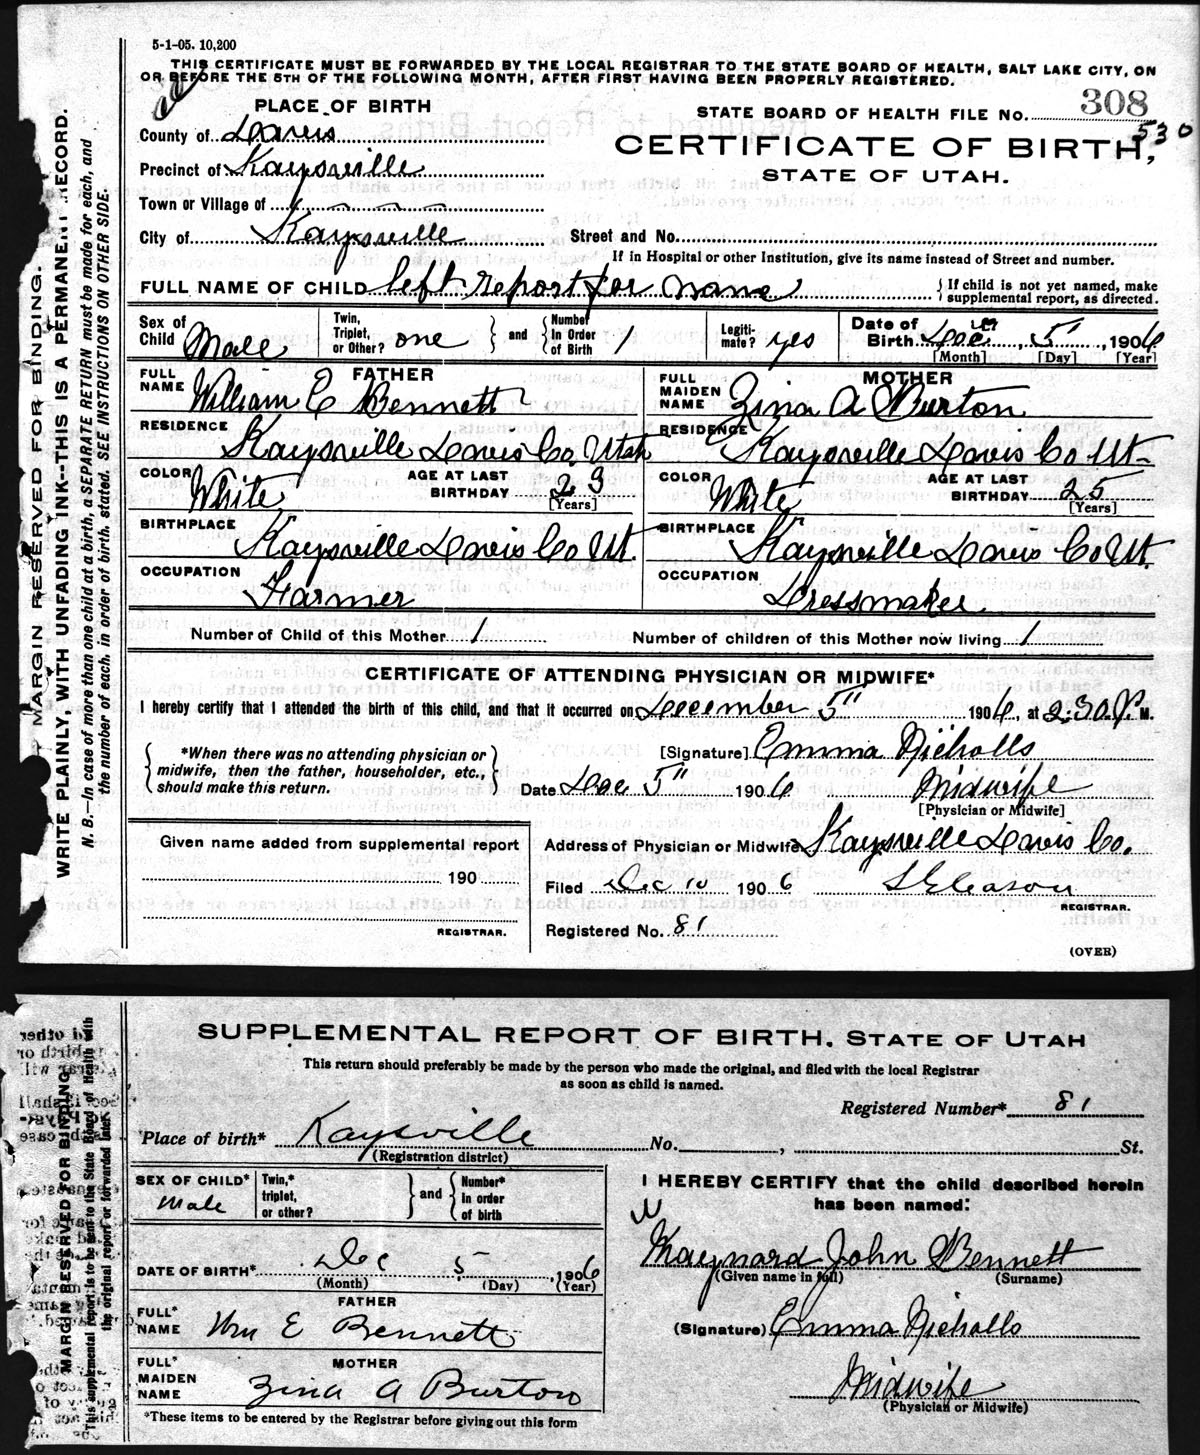 5-1-05. 10,200
THIS CERTIFICATE MUST BE FORWARDED BY THE LOCAL REGISTRAR TO THE STATE BOARD OF HEALTH, SALT LAKE CITY, ON
OR BEFORE THE 5TH OF THE FOLLOWING MONTH, AFTER FIRST HAVING BEEN PROPERLY REGISTERED.
MARGIN RESERVED FOR BINDING.
WRITE PLAINLY, WITH UNFADING INK--THIS IS A PERMANENT RECORD.
N. B.—In case of more than one child at a birth, a SEPARATE RETURN must be made for each, and
the number of each, in order of birth, stated. SEE INSTRUCTIONS ON OTHER SIDE.
PLACE OF BIRTH
County of Davis
Precinct of Kaysville
Town or Village of
City of Kaysville
STATE BOARD OF HEALTH FILE No. 308
530
CERTIFICATE OF BIRTH,
STATE OF UTAH.
Street and No.
If in Hospital or other Institution, give its name instead of Street and number.
FULL NAME OF CHILD left report for name
If child is not yet named, make
supplemental report, as directed.
Sex of Child Male
Twin, Triplet, or Other? one and Number In Order of Birth 1
Legiti-mate? yes
Date of Birth Dec 5", 1906
[Month] [Day] [Year]
FATHER
FULL NAME William E Bennett
RESIDENCE Kaysville Davis Co. Utah
COLOR White AGE AT LAST BIRTHDAY 23 [Years]
BIRTHPLACE Kaysville Davis Co Ut.
OCCUPATION Farmer
MOTHER
FULL MAIDEN NAME Zina A Burton
RESIDENCE Kaysville Davis Co Ut
COLOR White AGE AT LAST BIRTHDAY 25 [Years]
BIRTHPLACE Kaysville Davis Co Ut.
OCCUPATION Dressmaker
Number of Child of this Mother 1 Number of children of this Mother now living 1
CERTIFICATE OF ATTENDING PHYSICIAN OR MIDWIFE*
I hereby certify that I attended the birth of this child, and that it occurred on December 5" 1906, at 2:30 P. M.
*When there was no attending physician or
midwife, then the father, householder, etc.,
should make this return.
[Signature] Emma Nicholls
Date Dec 5" 1906 Midwife
[Physician or Midwife]
Given name added from supplemental report
190
REGISTRAR.
Address of Physician or Midwife Kaysville Davis Co.
Filed Dec 10 1906 S Gleason
REGISTRAR.
Registered No. 81
(OVER)
MARGIN RESERVED FOR BINDING
This supplemental report is to be sent to the State Board of Health with
the original report or forwarded later
SUPPLEMENTAL REPORT OF BIRTH. STATE OF UTAH
This return should preferably be made by the person who made the original, and filed with the local Registrar
as soon as child is named.
Registered Number* 81
Place of birth* Kaysville No. , St.
(Registration district)
SEX OF CHILD* Male
Twin,* triplet, or other? and Number* in order of birth
DATE OF BIRTH* Dec 5, 1906
(Month) (Day) (Year)
FATHER
FULL* NAME Wm E Bennett
MOTHER
FULL* MAIDEN NAME Zina A Burton
*These items to be entered by the Registrar before giving out this form
I HEREBY CERTIFY that the child described herein
has been named:
Maynard John Bennett
(Given name in full) (Surname)
(Signature) Emma Nicholls
Midwife
(Physician or Midwife)